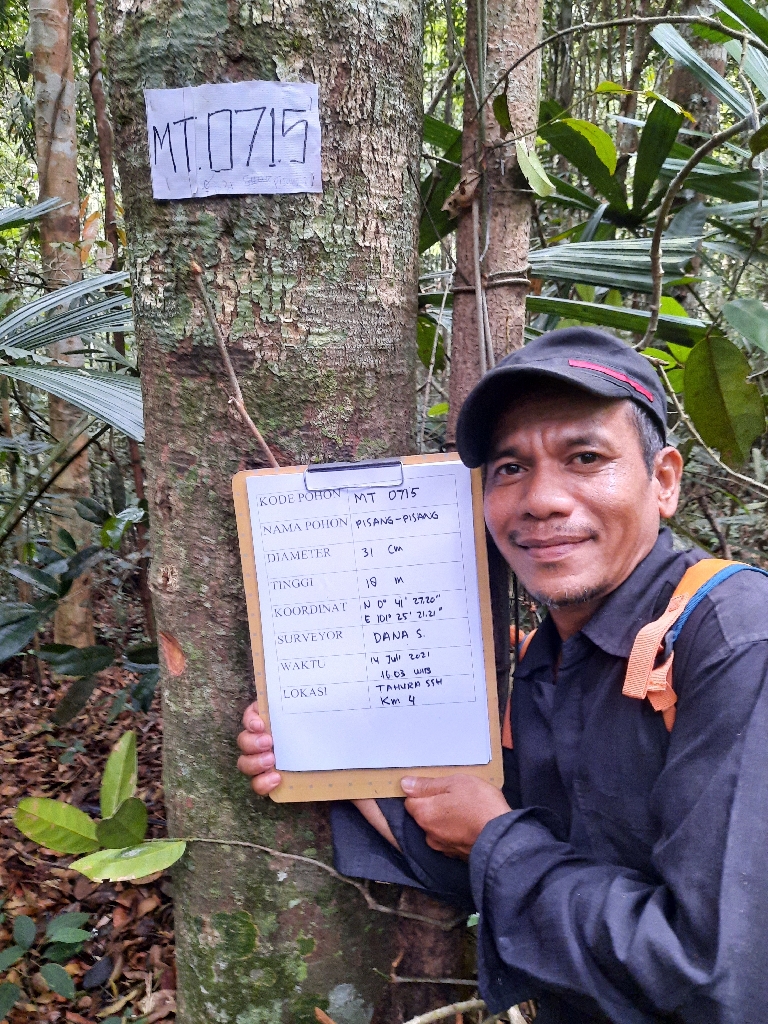 MT.0715
KODE POHON MT 0715
NAMA POHON PISANG-PISANG
DIAMETER 31 cm
TINGGI 18 m
KOORDINAT N 0° 41' 27.20"
E 101° 25' 21.21"
SURVEYOR DANA S.
WAKTU 14 Juli 2021
16.03 WIB
LOKASI TAHURA SSH
Km 4